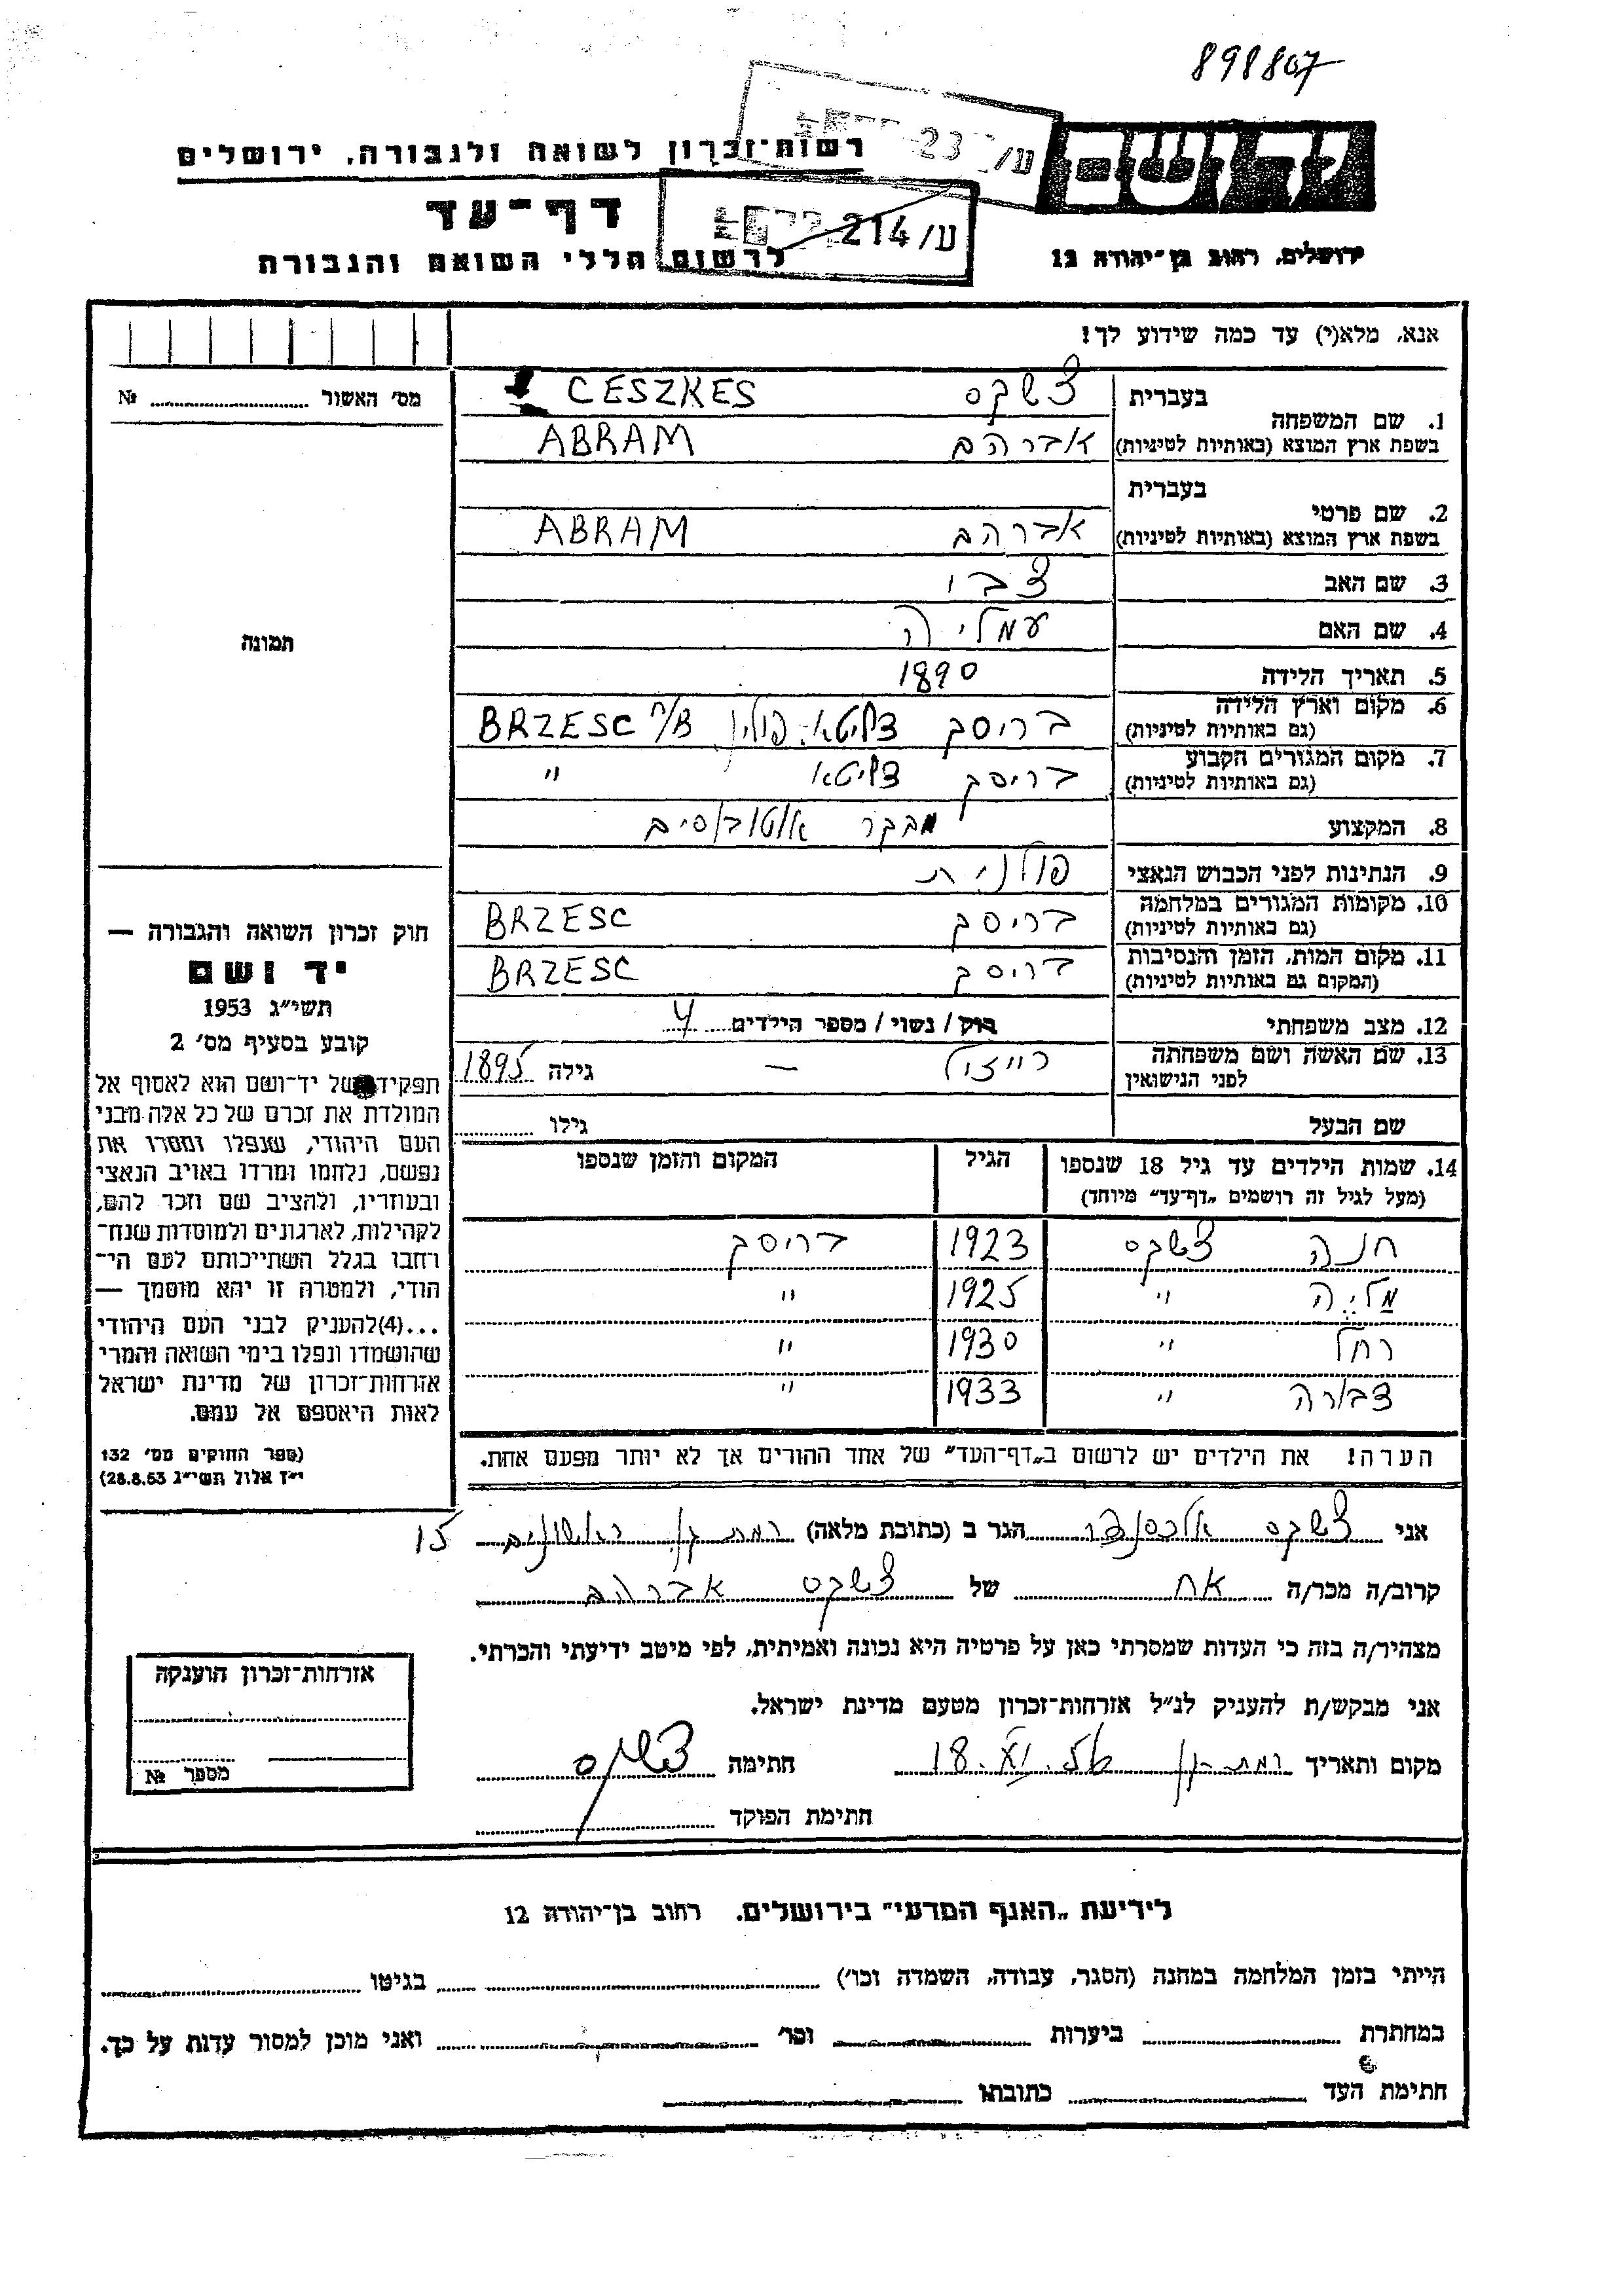 898807
רשות־זכרון לשואה ולגבורה, ירושלים
ע/ 23
דף־עד
ע/ 214
לרשום חללי השואה והגבורה
ירושלים, רחוב בן־יהודה 12
אנא, מלא(י) עד כמה שידוע לך!
מס׳ האשור № 
1. שם המשפחה
בעברית צשקס CESZKES
בשפת ארץ המוצא (באותיות לטיניות) אברהם ABRAM
2. שם פרטי
בעברית
בשפת ארץ המוצא (באותיות לטיניות) אברהם ABRAM
3. שם האב צבי
4. שם האם עמליה
תמונה
5. תאריך הלידה 1890
6. מקום וארץ הלידה
(גם באותיות לטיניות) בריסק דליטא פולין BRZESC n/B
7. מקום המגורים הקבוע
(גם באותיות לטיניות) בריסק דליטא "
8. המקצוע מבקר אוטובוסים
9. הנתינות לפני הכבוש הנאצי פולנית
10. מקומות המגורים במלחמה
(גם באותיות לטיניות) בריסק BRZESC
11. מקום המות, הזמן והנסיבות
(המקום גם באותיות לטיניות) בריסק BRZESC
12. מצב משפחתי רוק / נשוי / מספר הילדים 4
13. שם האשה ושם משפחתה
לפני הנישואין רייזל — גילה 1895
שם הבעל גילו
14. שמות הילדים עד גיל 18 שנספו
(מעל לגיל זה רושמים „דף־עד״ מיוחד)
הגיל
המקום והזמן שנספו
חנה צשקס 1923 בריסק
מליה " 1925 "
רחל " 1930 "
דבורה " 1933 "
הערה! את הילדים יש לרשום ב„דף־העד״ של אחד ההורים אך לא יותר מפעם אחת.
חוק זכרון השואה והגבורה —
יד ושם
תשי״ג 1953
קובע בסעיף מס׳ 2
תפקידו של יד־ושם הוא לאסוף אל
המולדת את זכרם של כל אלה מבני
העם היהודי, שנפלו ומסרו את
נפשם, נלחמו ומרדו באויב הנאצי
ובעוזריו, ולהציב שם וזכר להם,
לקהילות, לארגונים ולמוסדות שנח־
רחבו בגלל השתייכותם לעם הי־
הודי, ולמטרה זו יהא מוסמך —
...(4) להעניק לבני העם היהודי
שהושמדו ונפלו בימי השואה והמרי
אזרחות־זכרון של מדינת ישראל
לאות היאספם אל עמם.
(ספר החוקים מס׳ 132
י״ז אלול תשי״ג 28.8.53)
אני צשקס אלכסנדר הגר ב (כתובת מלאה) רמת גן ראשונים 15
קרוב/ה מכר/ה אח של צשקס אברהם
מצהיר/ה בזה כי העדות שמסרתי כאן על פרטיה היא נכונה ואמיתית, לפי מיטב ידיעתי והכרתי.
אני מבקש/ת להעניק לנ״ל אזרחות־זכרון מטעם מדינת ישראל.
מקום ותאריך רמת גן 18 חתימה צשקס
חתימת הפוקד
אזרחות־זכרון הוענקה
מספר №
לידיעת „האגף המדעי״ בירושלים. רחוב בן־יהודה 12
הייתי בזמן המלחמה במחנה (הסגר, עבודה, השמדה וכו׳) בגיטו
במחתרת ביערות וכו׳ ואני מוכן למסור עדות על כך.
חתימת העד כתובתו